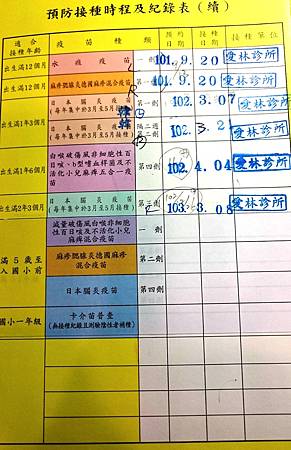 預防接種時程及紀錄表（續）
適合接種年齡 疫苗種類 預約日期 接種日期 接種單位
出生滿12個月 水痘疫苗 一劑 101. 9. 20 愛林診所
出生滿12個月 麻疹腮腺炎德國麻疹混合疫苗 第一劑 101. 9. 20 愛林診所
出生滿1年3個月 日本腦炎疫苗
(每年集中於3月至5月接種) 第一劑 102. 3. 07 愛林診所
隔二週 第二劑 102. 3. 2 愛林診所
出生滿1年6個月 白喉破傷風非細胞性百日咳、b型嗜血桿菌及不活化小兒麻痺五合一疫苗 第四劑 102. 4. 04 愛林診所
出生滿2年3個月 日本腦炎疫苗
(每年集中於3月至5月接種) 第三劑 103. 3. 08 愛林診所
滿5歲至入國小前 減量破傷風白喉非細胞性百日咳及不活化小兒麻痺混合疫苗 一劑
麻疹腮腺炎德國麻疹混合疫苗 第二劑
日本腦炎疫苗 第四劑
國小一年級 卡介苗普查
(無接種紀錄且測驗陰性者補種)